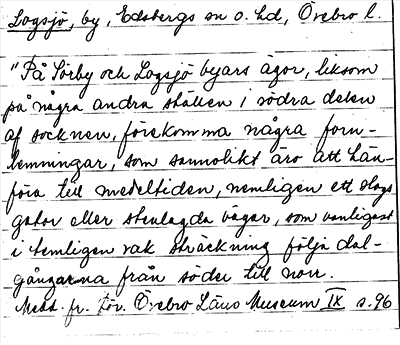 Logsjö, by, Edsbergs sn o. hd, Örebro l.
"På Sörby och Logsjö byars ägor, liksom
på några andra ställen i södra delen
af socknen, förekomma några forn-
lemningar, som sannolikt äro att hän-
föra till medeltiden, nemligen ett slags
gator eller stenlagda vägar, som vanligast
i temligen rak sträckning följa dal-
gångarna från söder till norr.
Medd fr. För. Örebro Läns Museum IX s. 96